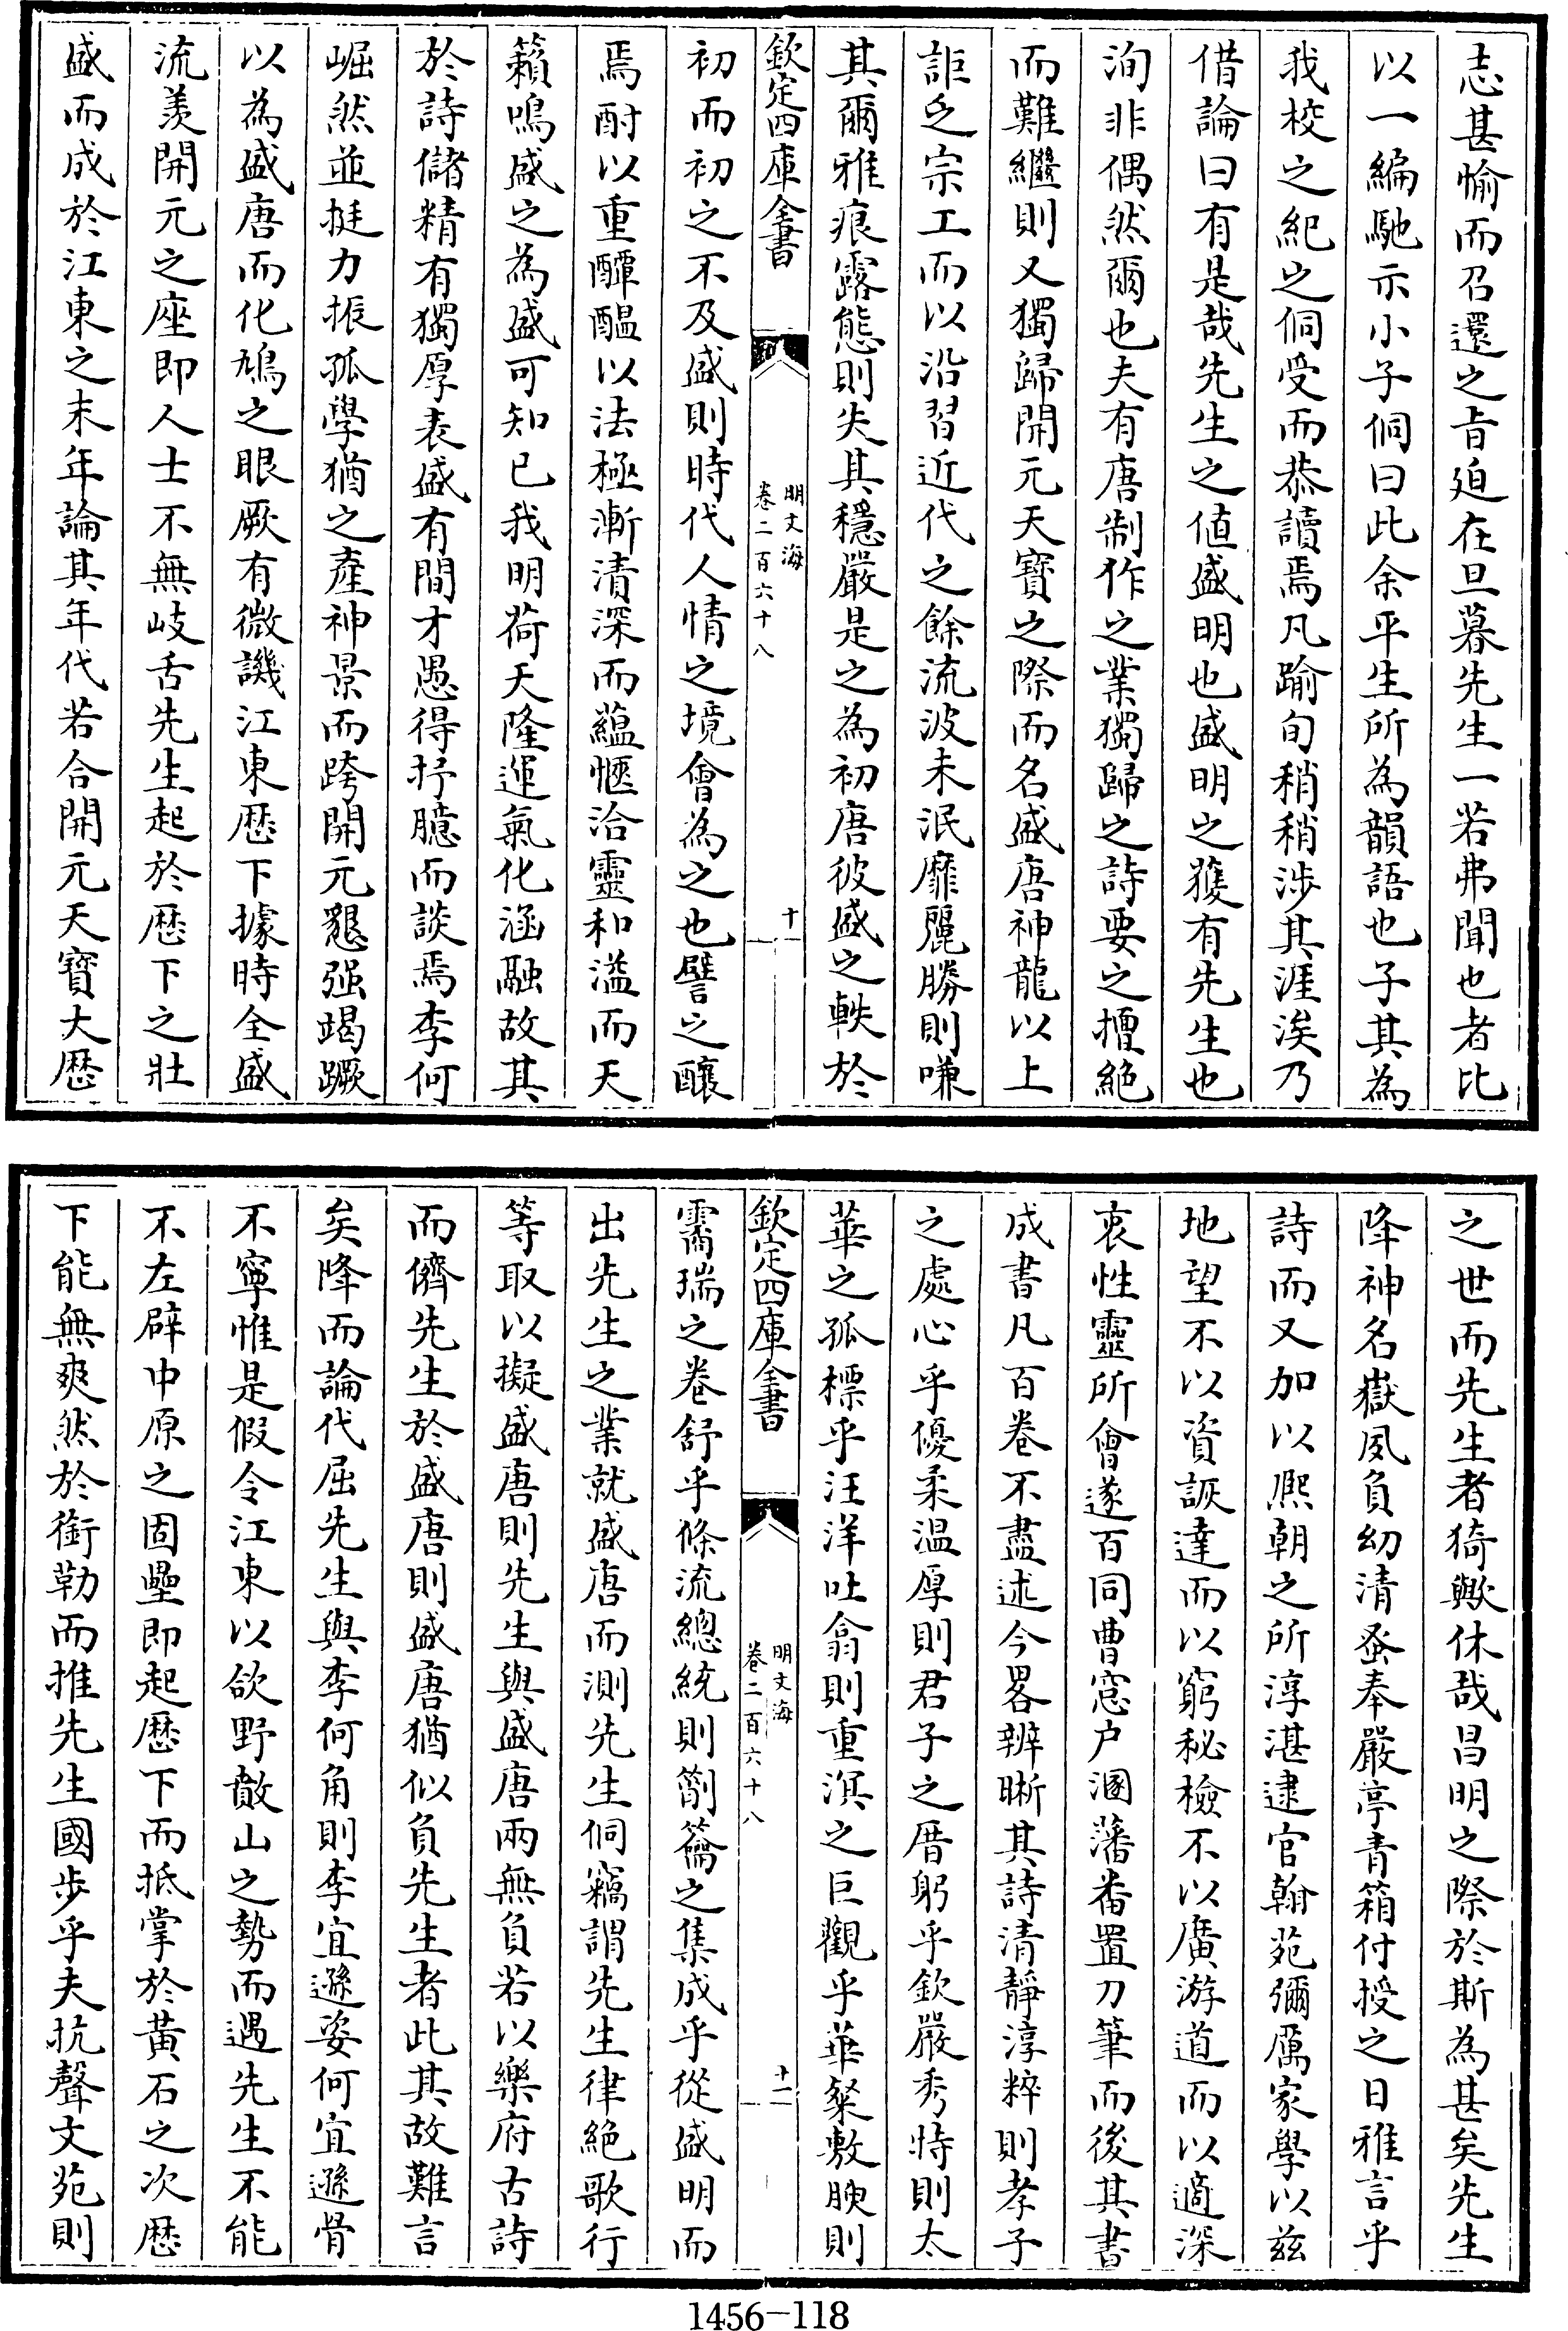 志甚愉而召還之旨迫在旦暮先生一若弗聞也者比
以一編馳示小子侗曰此余平生所為韻語也子其為
我校之紀之侗受而恭讀焉凡踰旬稍稍涉其涯涘乃
借論曰有是哉先生之值盛明也盛明之獲有先生也
洵非偶然爾也夫有唐制作之業獨歸之詩要之擅絕
而難繼則又獨歸開元天寶之際而名盛唐神龍以上
詎乏宗工而以沿習近代之餘流波未泯靡麗勝則嗛
其爾雅痕露態則失其穩嚴是之為初唐彼盛之軼於
欽定四庫全書
明文海
卷二百六十八
十
初而初之不及盛則時代人情之境會為之也譬之釀
焉酎以重醰醞以法極漸漬深而蘊愜洽靈和溢而天
籟鳴盛之為盛可知已我明荷天隆運氣化涵融故其
於詩儲精有獨厚表盛有間才愚得抒臆而談焉李何
崛然並挺力振孤學猶之產神景而跨開元懇强竭蹶
以為盛唐而化鳩之眼厥有微譏江東歷下據時全盛
流羨開元之座即人士不無岐舌先生起於歷下之壯
盛而成於江東之末年論其年代若合開元天寶大歷
之世而先生者猗歟休哉昌明之際於斯為甚矣先生
降神名嶽夙負幼清蚤奉嚴亭青箱付授之日雅言乎
詩而又加以熈朝之所淳湛逮官翰苑彌厲家學以茲
地望不以資詼達而以窮秘檢不以廣游道而以適深
衷性靈所會遂百同曹窓户溷藩畨置刀筆而後其書
成書凡百卷不盡述今畧辨晰其詩清靜淳粹則孝子
之處心乎優柔温厚則君子之厝躬乎欽嚴秀特則太
華之孤標乎汪洋吐翕則重溟之巨觀乎華粲敷腴則
欽定四庫全書
明文海
卷二百六十八
十一
霱瑞之卷舒乎條流總統則劄籥之集成乎從盛明而
出先生之業就盛唐而測先生侗竊謂先生律絕歌行
等取以擬盛唐則先生與盛唐兩無負若以樂府古詩
而儕先生於盛唐則盛唐猶似負先生者此其故難言
矣降而論代屈先生與李何角則李宜遜姿何宜遜骨
不寧惟是假令江東以欲野㪚山之勢而遇先生不能
不左辟中原之固壘即起歷下而抵掌於黃石之次歷
下能無爽然於銜勒而推先生國步乎夫抗聲文苑則
1456-118